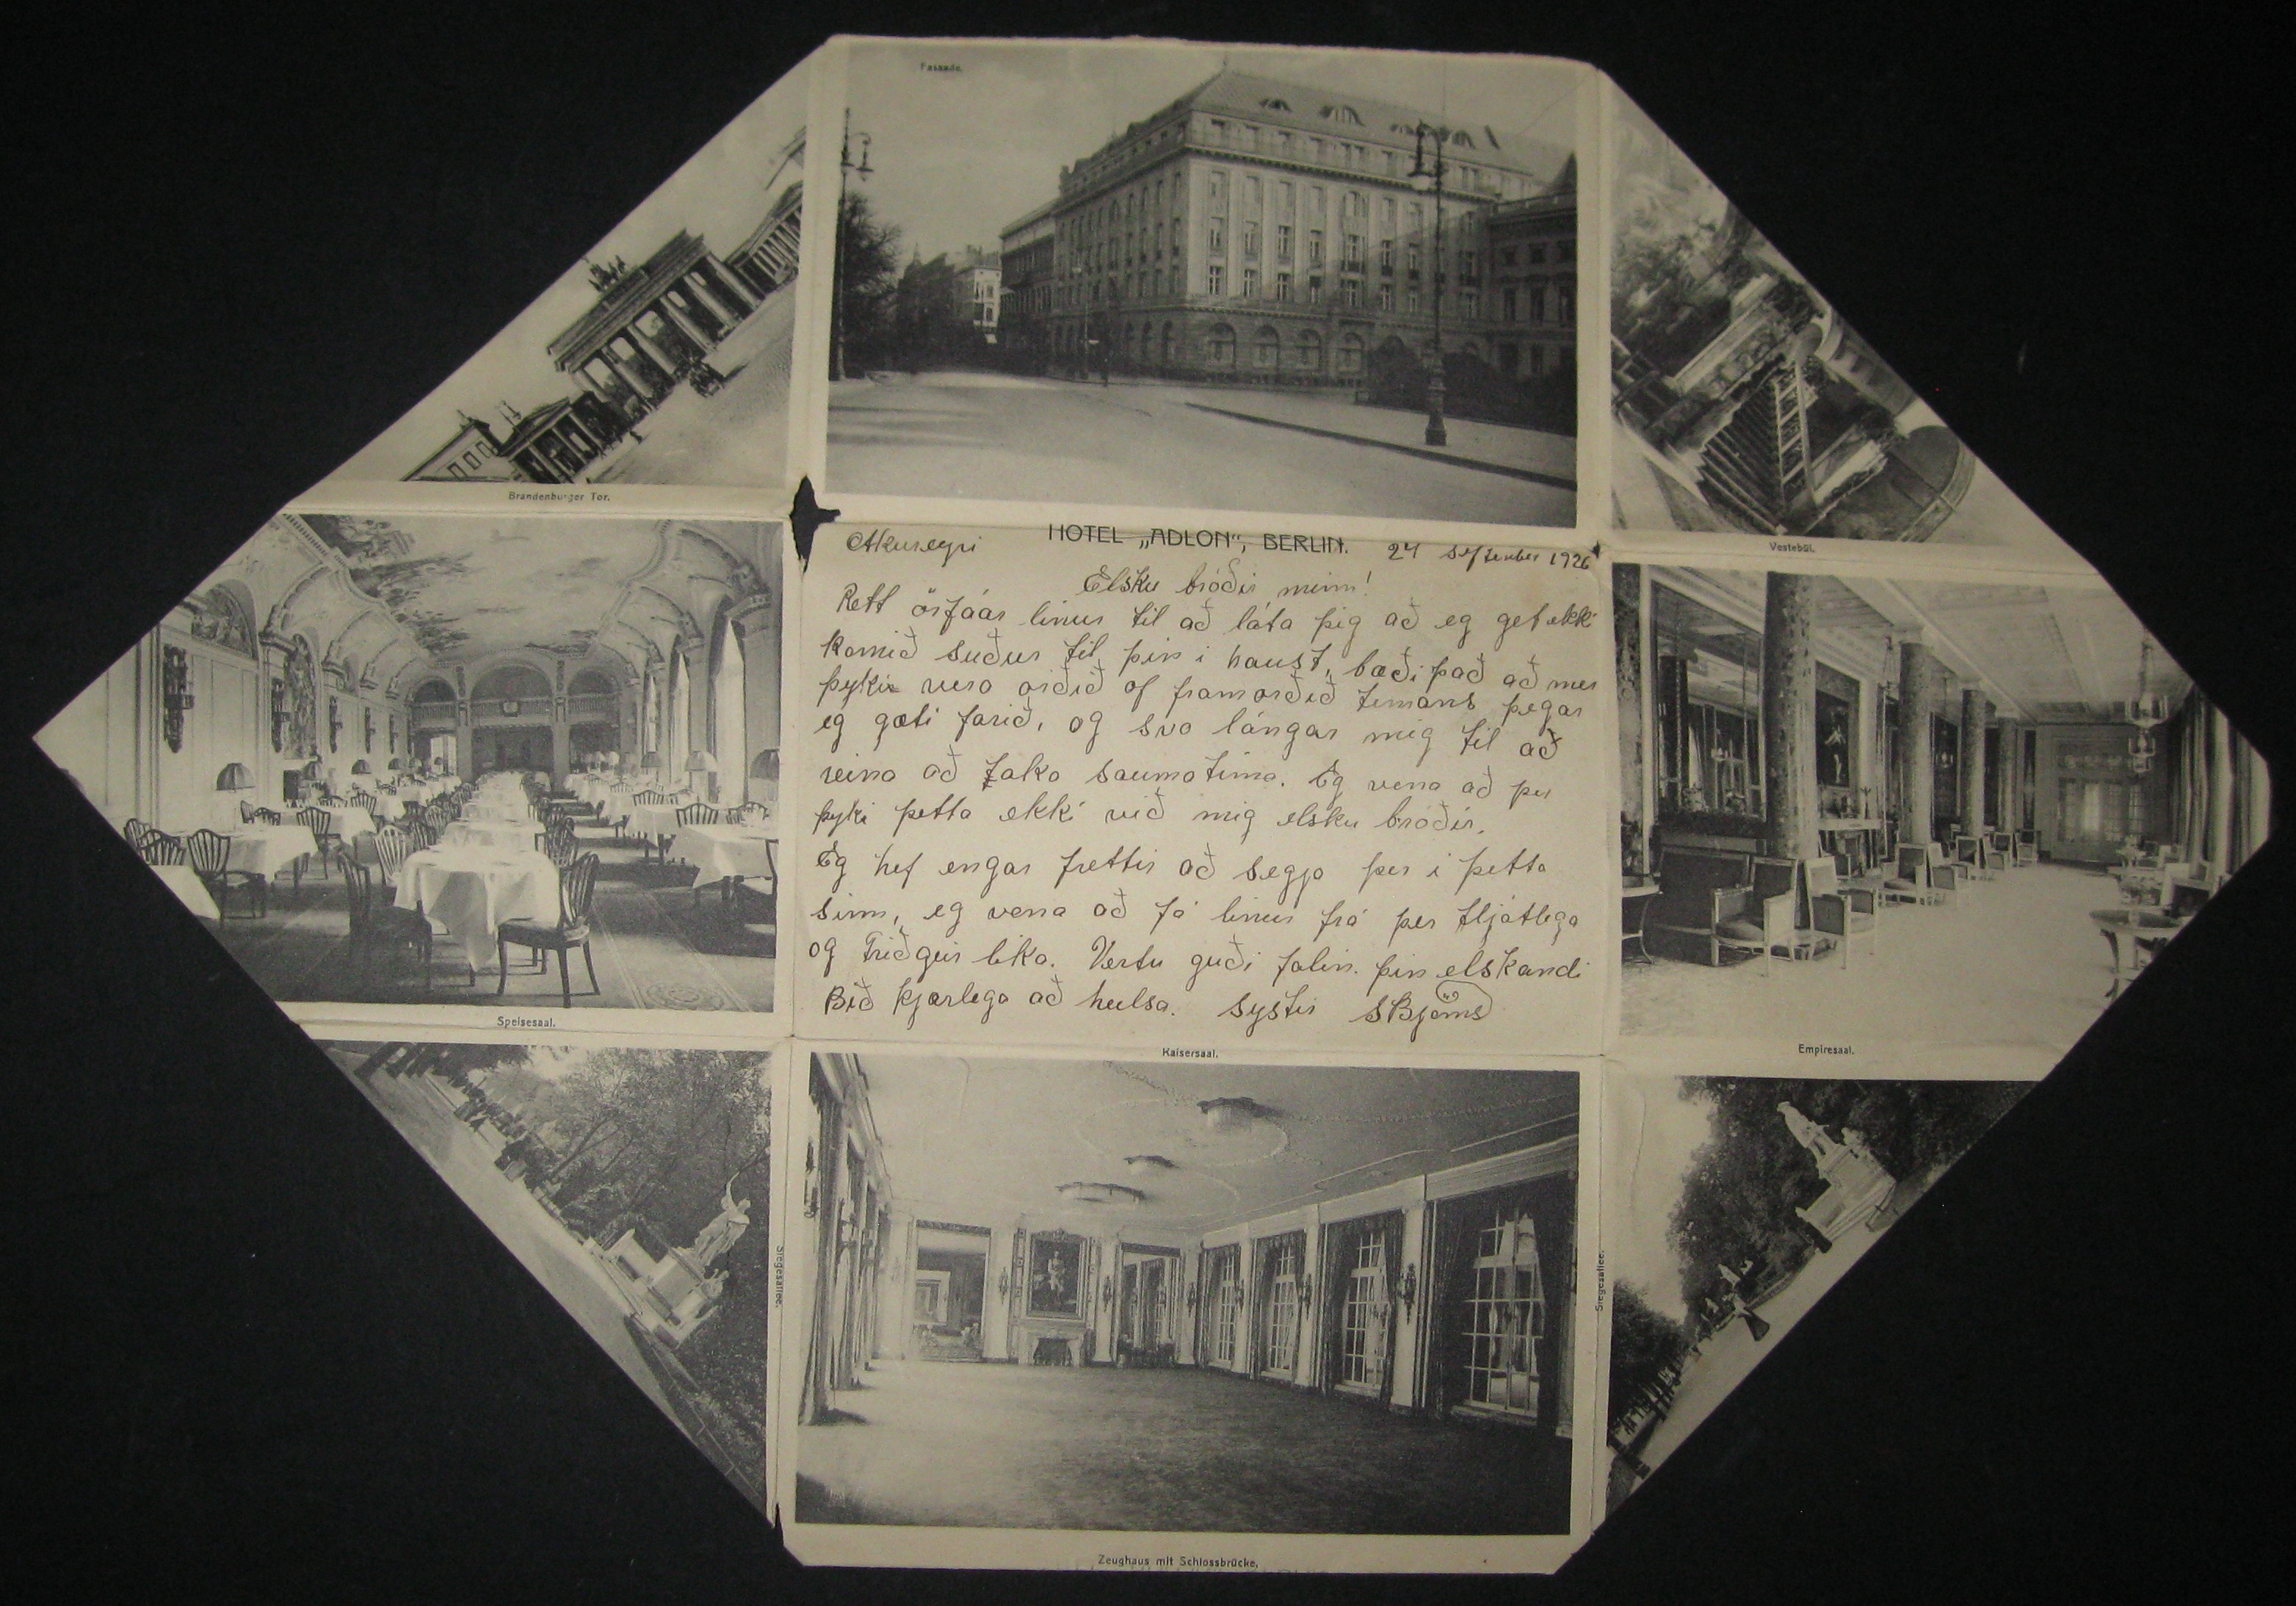 Fassade.
Brandenburger Tor.
Vestebül.
HOTEL „ADLON", BERLIN.
Akureyri 24 september 1926
Elsku bróðir minn!
Rett örfáar linur til að láta þig að eg get ekki
komið suður til þin i haust, bæði það að mer
þykir vera orðið of framorðið timans þegar
eg gæti farið, og svo lángar mig til að
reina að taka saumatima. Eg vona að þer
þyki þetta ekki við mig elsku bróðir.
Eg hef engar frettir að segja þer i þetta
sinn, eg vona að fá linur frá þer fljótlega
og Friðgeir lika. Vertu guði falin. þin elskandi
Bið kjærlega að heilsa. systir SBjörns
Speisesaal.
Empiresaal.
Kaisersaal.
Siegesallee.
Siegesallee.
Zeughaus mit Schlossbrücke.